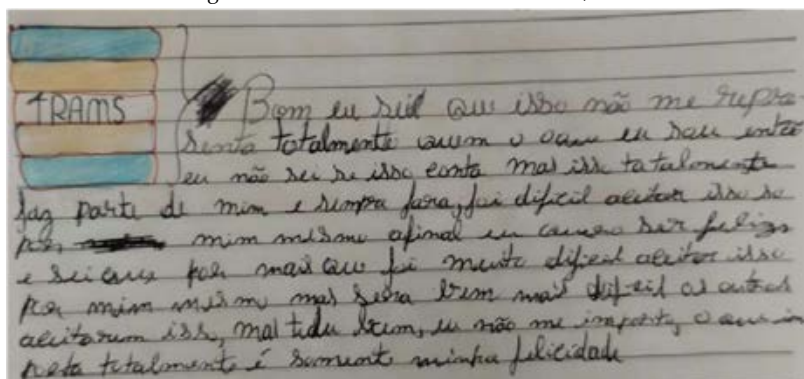 TRAMS
Bom eu seil que isso não me repre
senta totalmente quem o que eu sou entre
eu não sei se isso conta mas isso totalmente
faz parte de mim e sempre fara, foi dificil aceitar isso so
por mim mesmo afinal eu quero ser feliz
e sei que por mais que foi muito dificil aceitar isso
por mim mesmo mas sera bem mais dificil os outros
aceitarem isso, mal tudu bem, eu não me importo, o que im
porta totalmente é somente minha felicidade